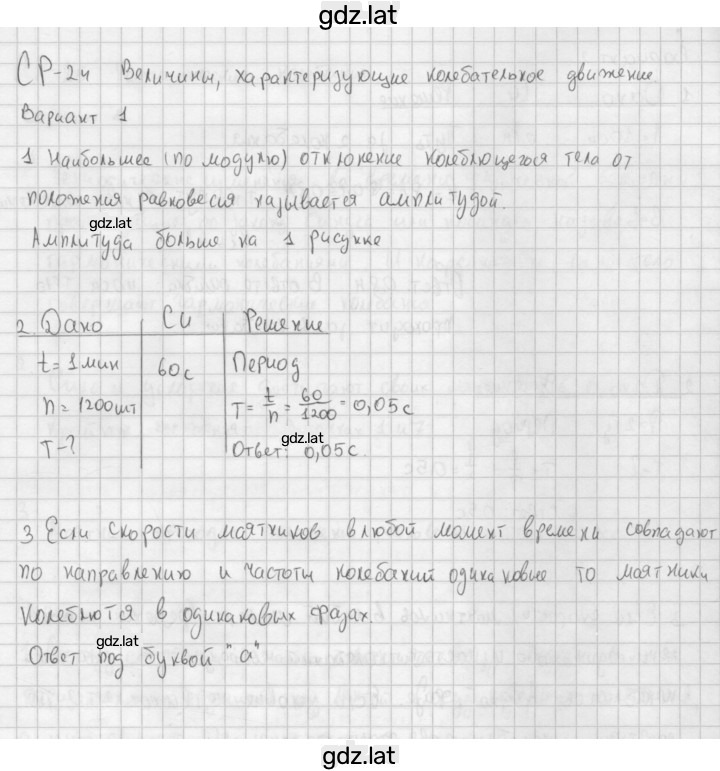 gdz.lat
СР-24 Величины, характеризующие колебательное движение
Вариант 1
1 Наибольшее (по модулю) отклонение колеблющегося тела от
положения равновесия называется амплитудой.
gdz.lat
Амплитуда больше на 1 рисунке
2 Дано СИ Решение
t = 1 мин 60 с Период
n = 1200 шт T = t/n = 60/1200 = 0,05 с
gdz.lat
T - ? Ответ: 0,05 с.
3 Если скорости маятников в любой момент времени совпадают
по направлению и частоты колебаний одинаковые то маятники
колеблются в одинаковых фазах.
gdz.lat
Ответ под буквой "а"
gdz.lat